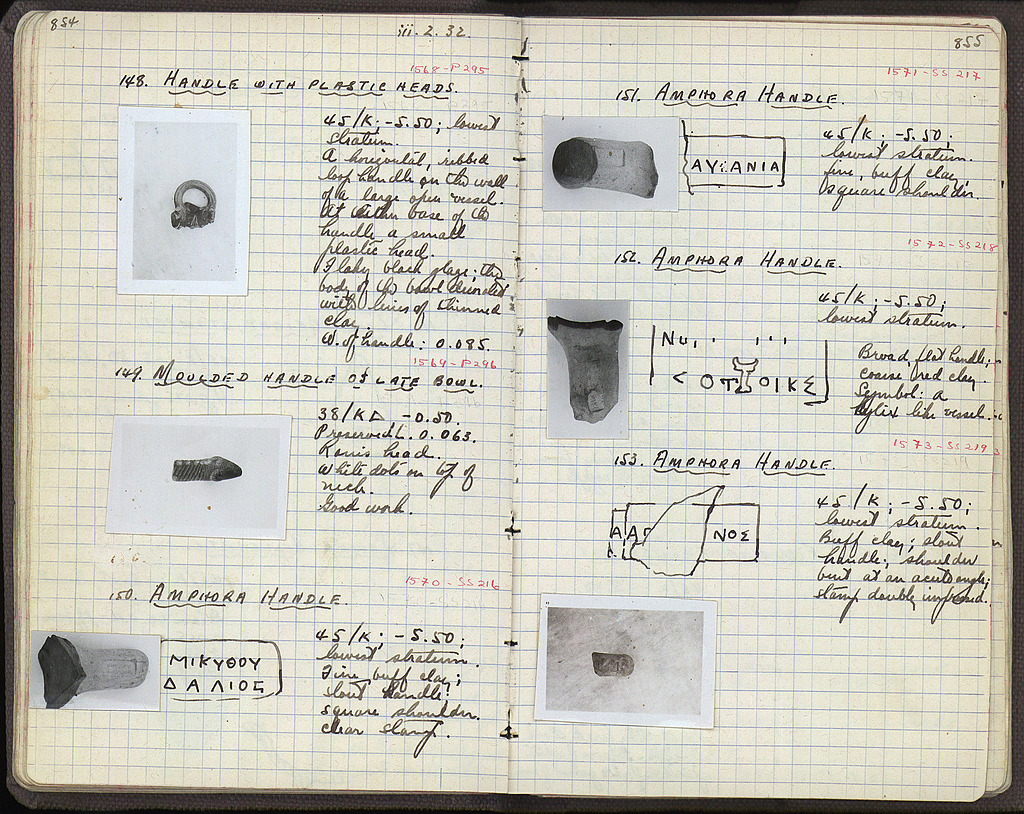 854
iii.2.32.
1568-P295
148. HANDLE WITH PLASTIC HEADS.
45/K; -5.50; lowest
stratum.
A horizontal, ribbed
loop handle on the wall
of a large open vessel.
At either base of the
handle a small
plastic head.
Flaky black glaze; the
body of the bowl decorated
with lines of thinned
clay.
W. of handle: 0.085.
1569-P296
149. MOULDED HANDLE OF LATE BOWL.
38/KΔ -0.50.
Preserved L. 0.063.
Ram's head.
White dots on top of
neck.
Good work.
1570-SS216
150. AMPHORA HANDLE.
ΜΙΚΥΘΟΥ
ΔΑΛΙΟΣ
45/K; -5.50;
lowest stratum.
Fine buff clay;
stout handle:
square shoulder.
clear stamp.
855
1571-SS217
151. AMPHORA HANDLE.
ΑΥΣΑΝΙΑ
45/K; -5.50;
lowest stratum.
fine, buff clay,
square shoulder.
1572-SS218
152. AMPHORA HANDLE.
45/K; -5.50;
lowest stratum.
Νυ
< ΟΤ ΟΙΚΣ
Broad, flat handle;
coarse red clay.
Symbol: a
kylix like vessel.
1573-SS219
153. AMPHORA HANDLE.
Α ΑΓ ΝΟΣ
45/K; -5.50;
lowest stratum.
Buff clay; stout
handle; shoulder
bent at an acute angle;
stamp doubly impressed.